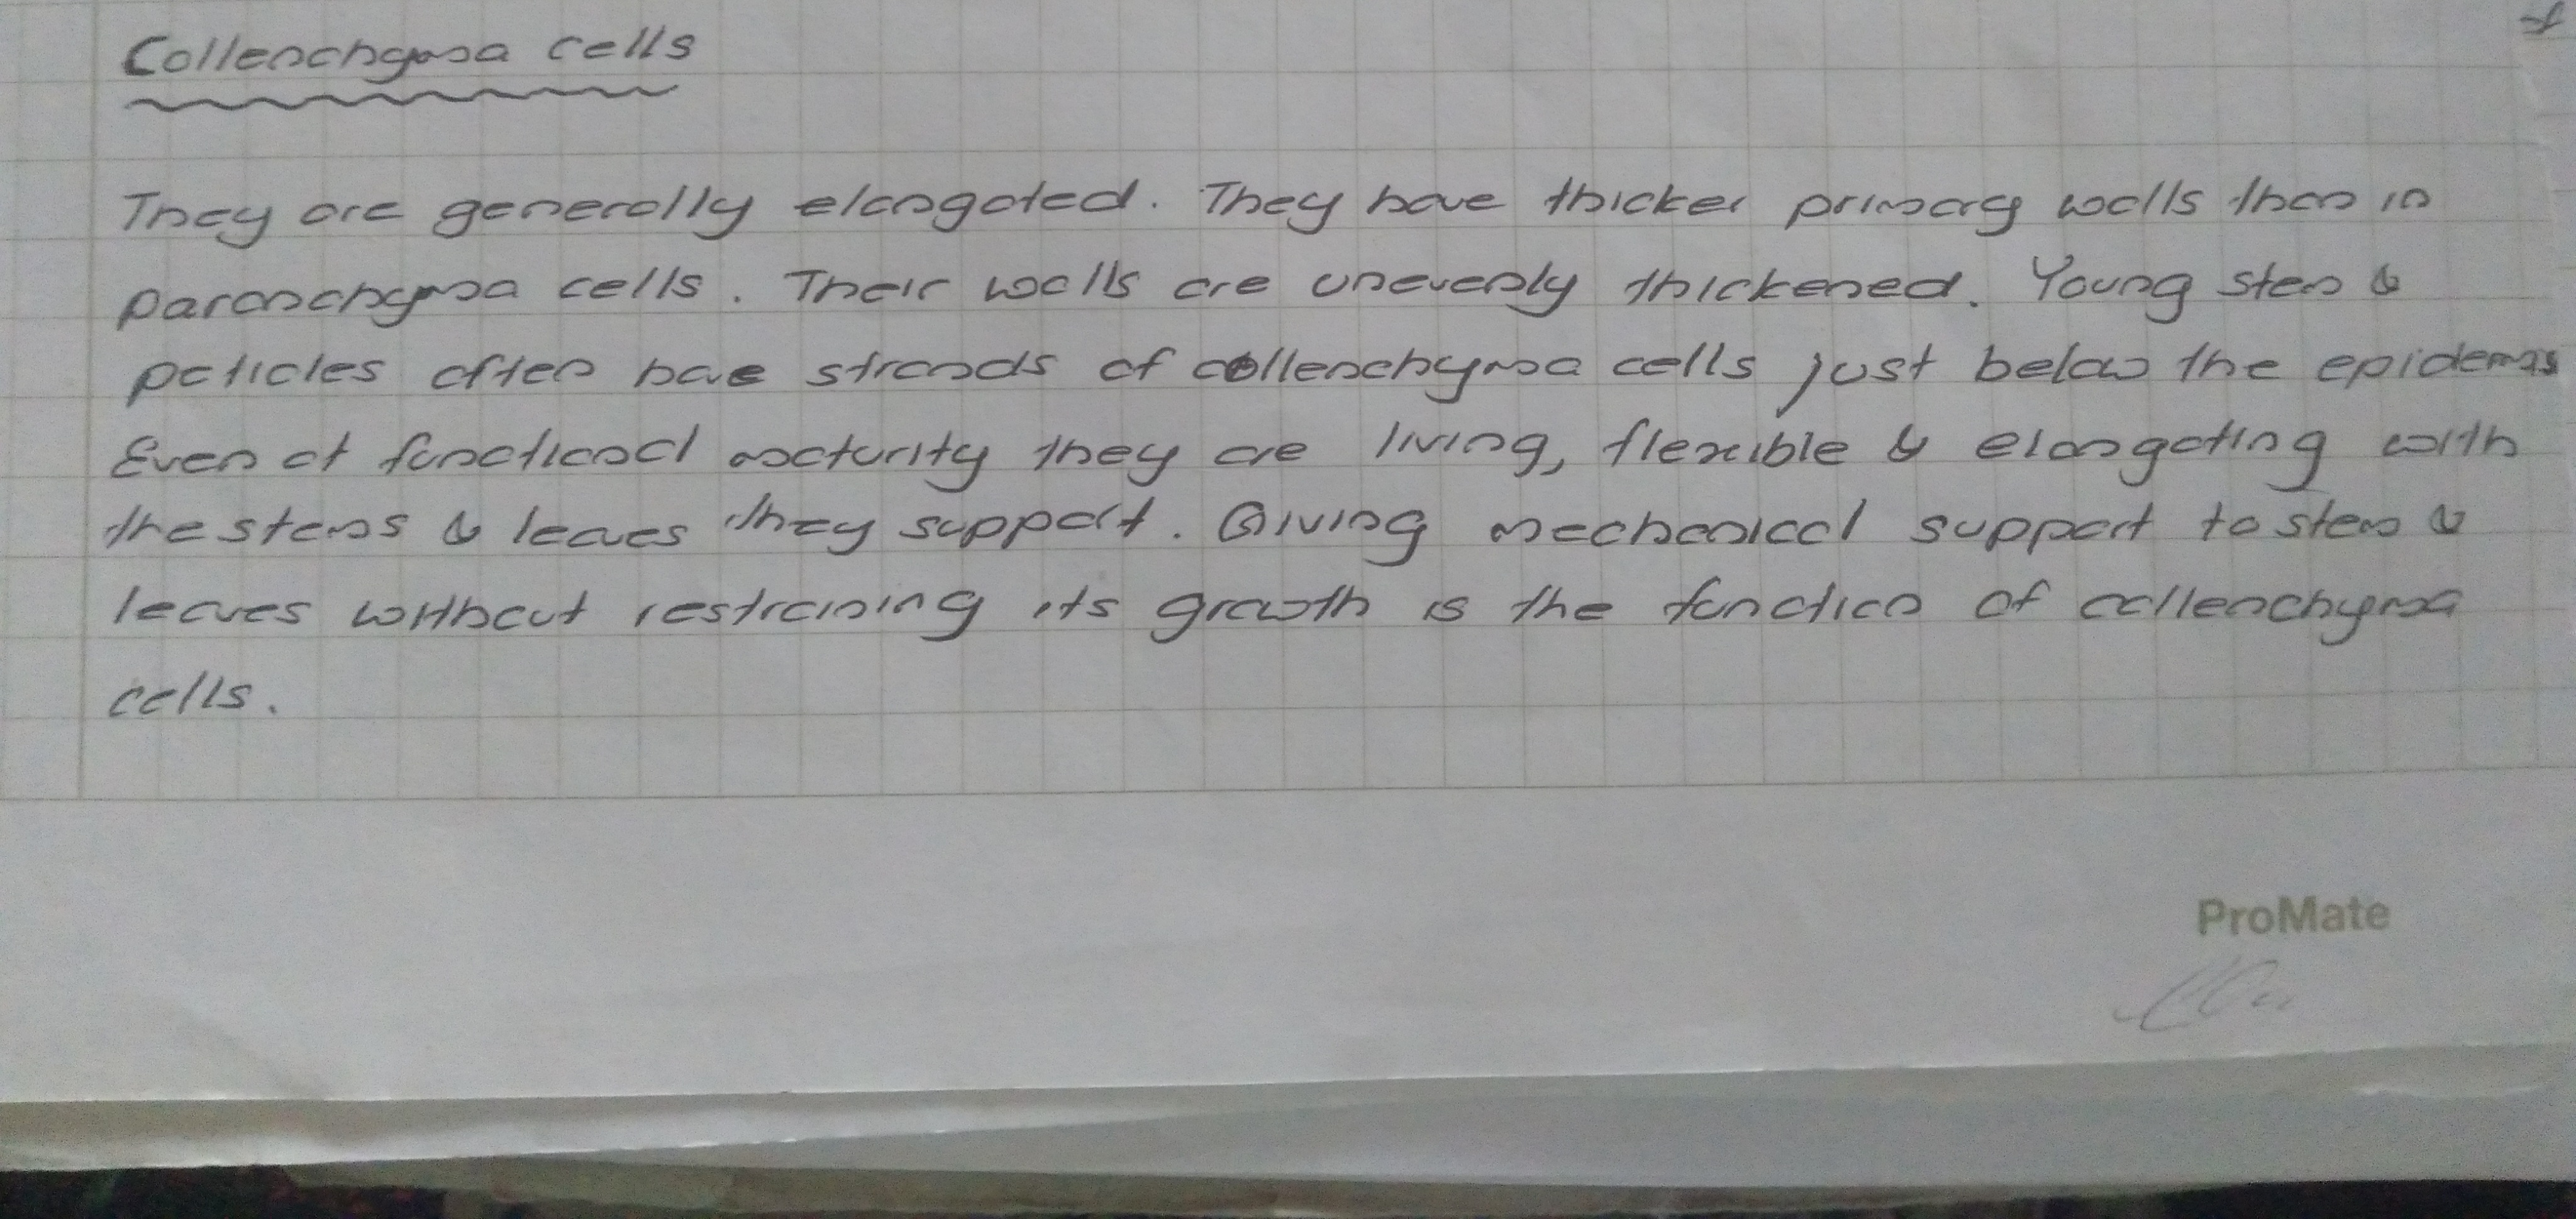 Collenchyma cells
They are generally elongated. They have thicker primary walls than in
parenchyma cells. Their walls are unevenly thickened. Young stem &
petioles often have strands of collenchyma cells just below the epidermis
Even at functional maturity they are living, flexible & elongating with
the stems & leaves they support. Giving mechanical support to stem &
leaves without restraining its growth is the function of collenchyma
cells.
ProMate